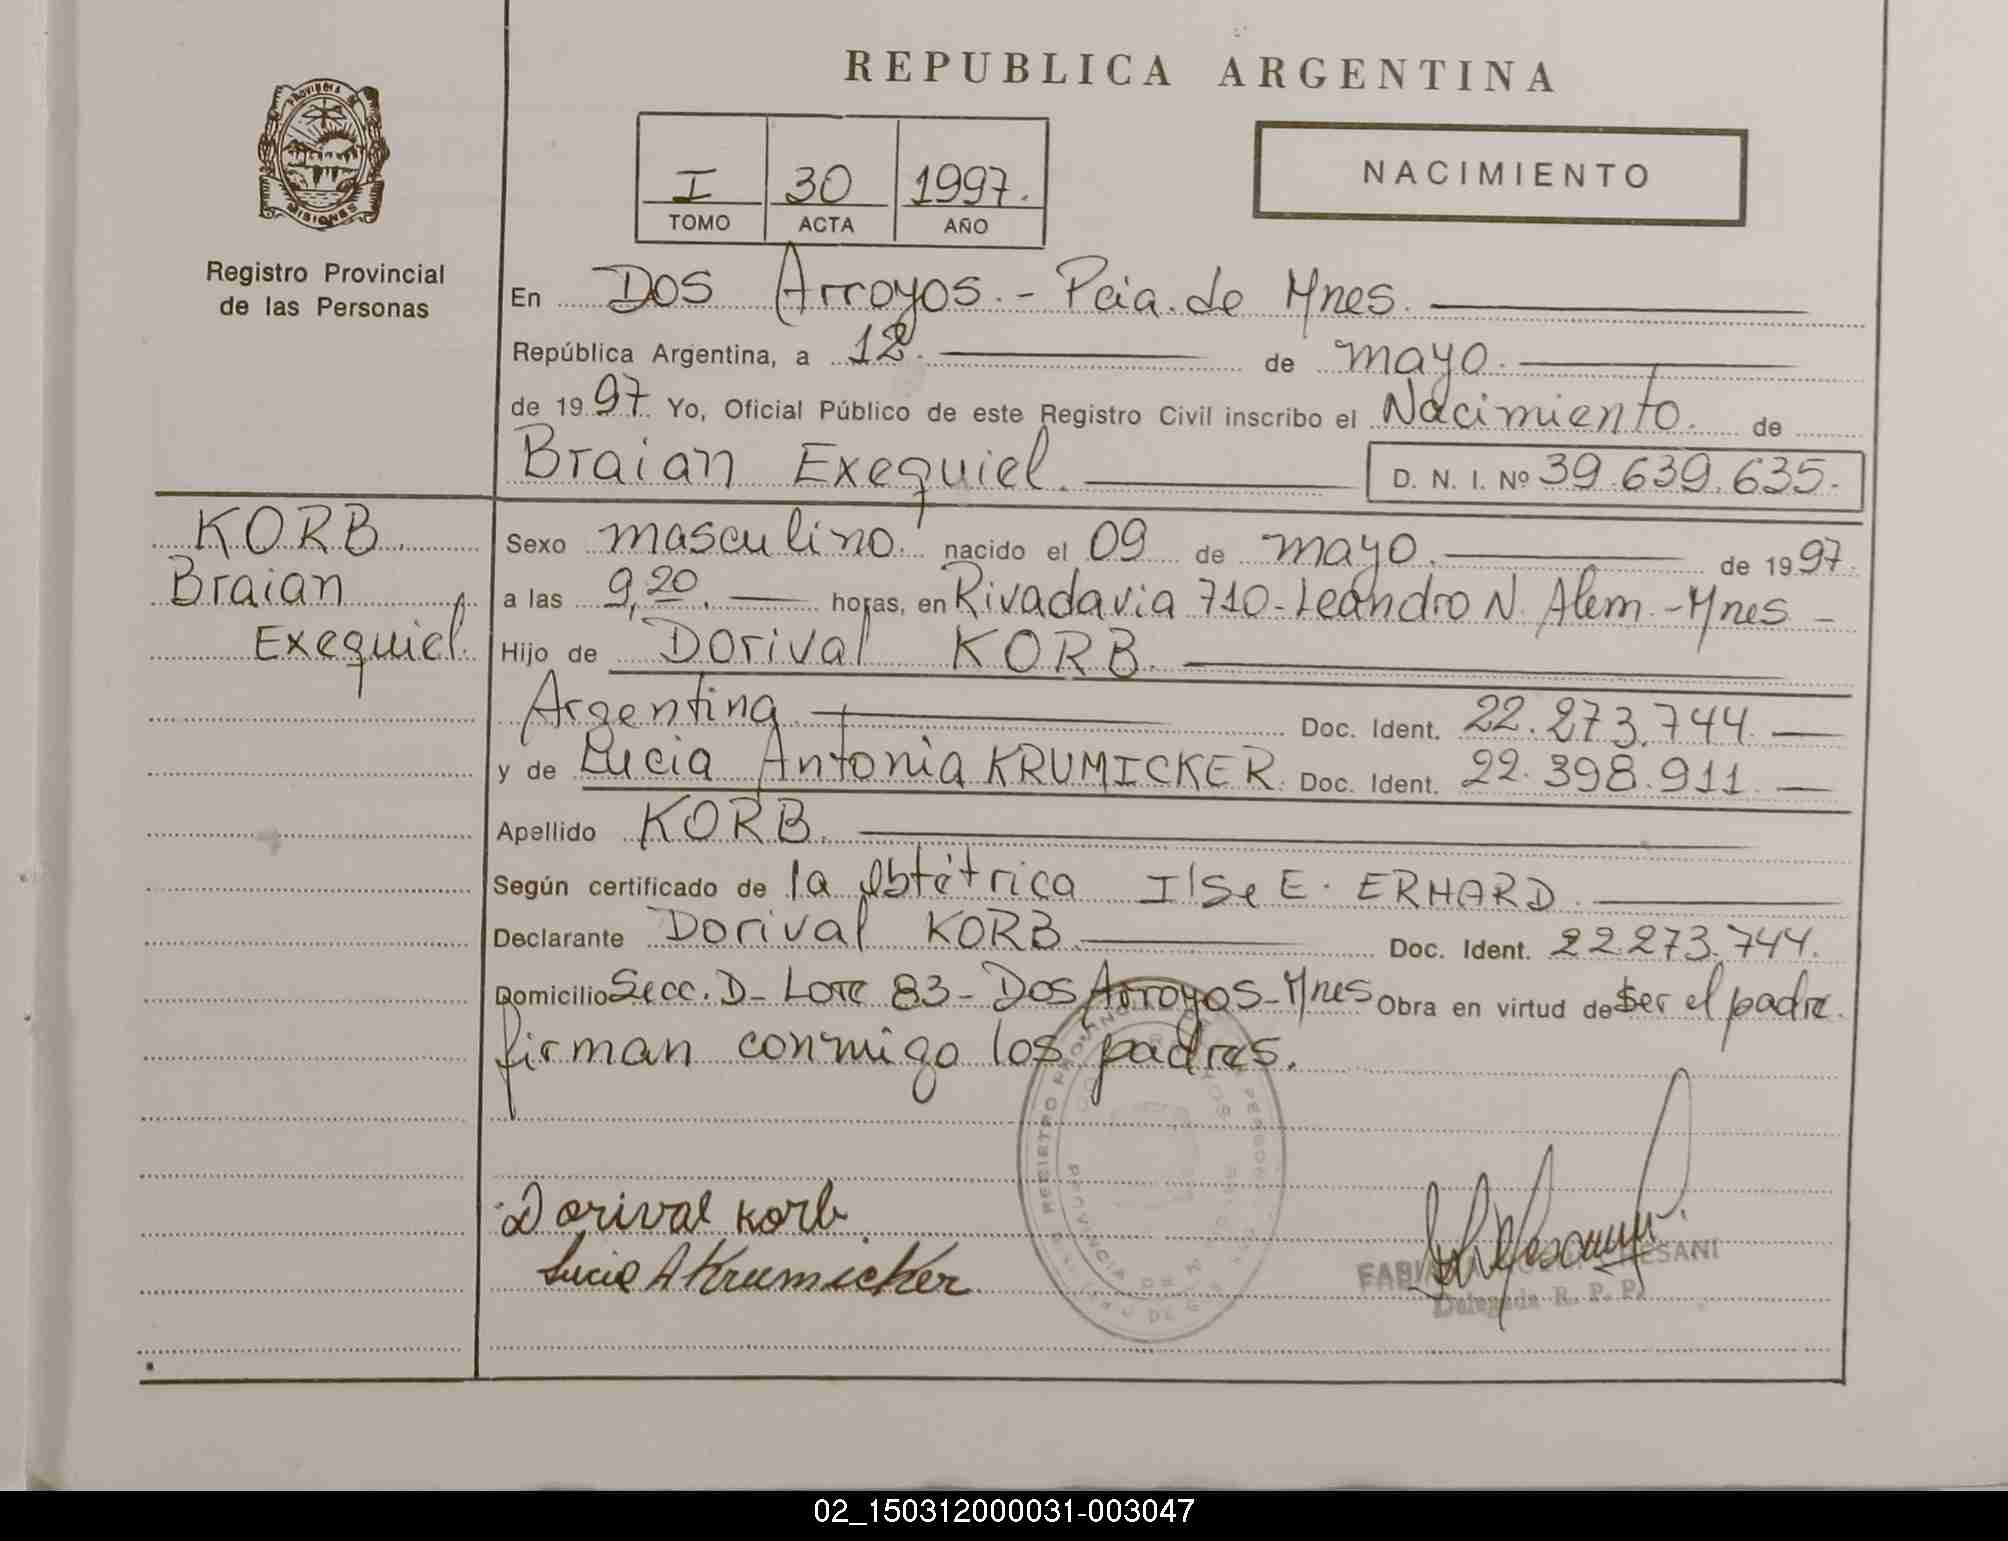 REPUBLICA ARGENTINA
PROVINCIA DE
MISIONES
Registro Provincial
de las Personas
I 30 1997.
TOMO ACTA AÑO
NACIMIENTO
En Dos Arroyos.- Pcia. de Mnes.
República Argentina, a 12. de mayo.
de 1997. Yo, Oficial Público de este Registro Civil inscribo el Nacimiento. de
Braian Exequiel. D. N. I. Nº 39.639.635.
KORB.
Braian
Exequiel.
Sexo masculino. nacido el 09 de mayo. de 1997.
a las 9,20. horas, en Rivadavia 710-Leandro N. Alem.-Mnes -
Hijo de Dorival KORB.
Argentina Doc. Ident. 22.273.744.
y de Lucia Antonia KRUMICKER. Doc. Ident. 22.398.911.
Apellido KORB.
Según certificado de la obtétrica Ilse E. ERHARD.
Declarante Dorival KORB Doc. Ident. 22.273.744.
Domicilio Secc. D- Lote 83- Dos Arroyos-Mnes Obra en virtud de ser el padre.
firman conmigo los padres.
Dorival korb
Lucia A Krumicker
ESANI
Delegada R. P. P.
02_150312000031-003047